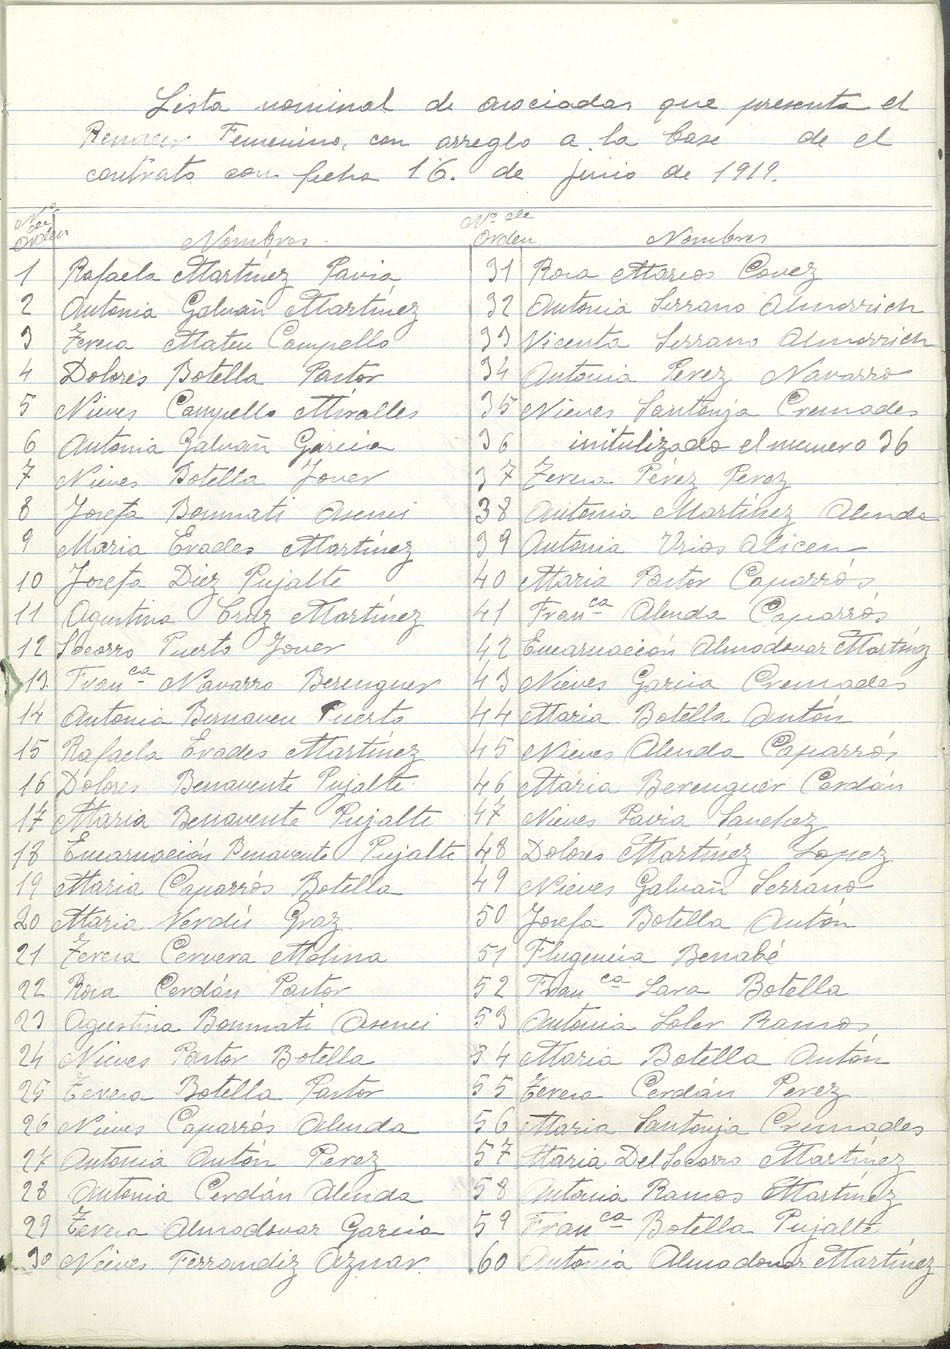 Lista nominal de asociadas que presenta el
Renacer Femenino, con arreglo a la base de el
contrato con fecha 16. de junio de 1919.
Nº de Orden Nombres
1 Rafaela Martínez Pavia
2 Antonia Galvañ Martínez
3 Teresa Mateu Campello
4 Dolores Botella Pastor
5 Nieves Campello Miralles
6 Antonia Galvañ Garcia
7 Nieves Botella Jover
8 Josefa Bonmati Asensi
9 Maria Evades Martínez
10 Josefa Diez Pujalte
11 Agustina Cruz Martínez
12 Socorro Puerto Jover
13 Franca Navarro Berenguer
14 Antonia Bernaveu Puerto
15 Rafaela Evades Martínez
16 Dolores Benavente Pujalte
17 Maria Benavente Pujalte
18 Encarnación Benavente Pujalte
19 Maria Caparrós Botella
20 Maria Verdú Graz
21 Teresa Cervera Molina
22 Rosa Cerdán Pastor
23 Agustina Bonmati Asensi
24 Nieves Pastor Botella
25 Teresa Botella Pastor
26 Nieves Caparrós Alenda
27 Antonia Antón Perez
28 Antonia Cerdán Alenda
29 Teresa Almodovar Garcia
30 Nieves Ferrandiz Aznar
Nº de Orden Nombres
31 Rosa Macos
32 Antonia Serrano Almorrich
33 Vicenta Serrano Almorrich
34 Antonia Perez Navarro
35 Nieves Santonja Cremades
36 initulizado el numero 36
37 Teresa Pérez Perez
38 Antonia Martínez Alenda
39 Antonia Urios
40 Maria Pastor Caparrós
41 Franca Alenda Caparrós
42 Encarnación Almodovar Martínez
43 Nieves Garcia Cremades
44 Maria Botella Antón
45 Nieves Alenda Caparrós
46 Maria Berenguer Cerdán
47 Nieves Pavia Sanchez
48 Dolores Martínez Lopez
49 Nieves Galvañ Serrano
50 Josefa Botella Antón
51 Flugencia Benabé
52 Franca Lara Botella
53 Antonia Soler Ramos
54 Maria Botella Antón
55 Teresa Cerdán Perez
56 Maria Santonja Cremades
57 Maria Del Socorro Martínez
58 Antonia Ramos Martínez
59 Franca Botella Pujalte
60 Antonia Almodovar Martínez